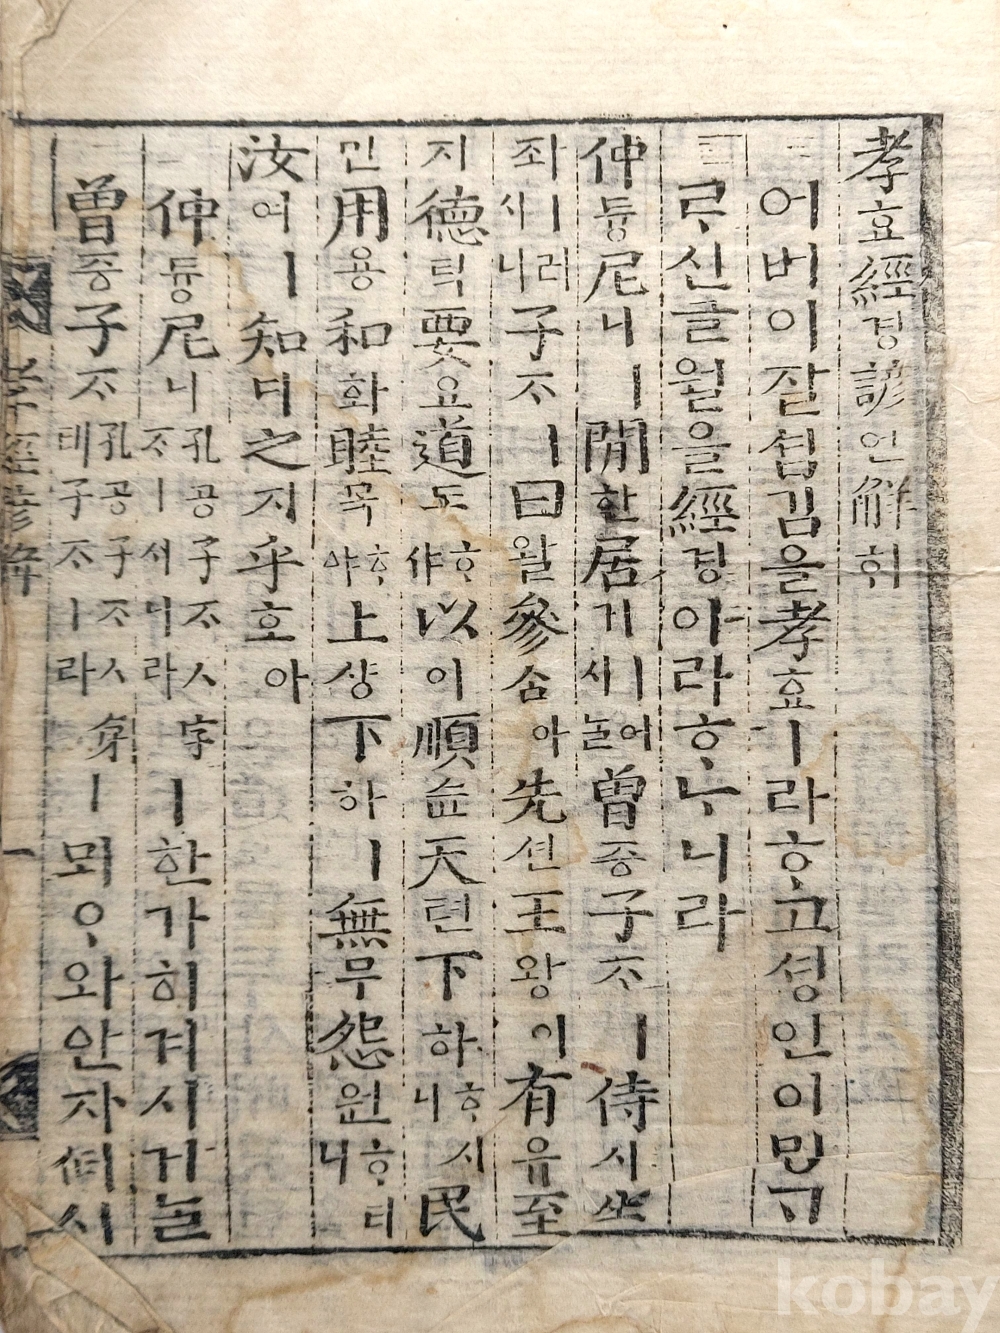 孝효經경諺언解ᄒᆡ
어버이잘섬김을孝효ㅣ라ᄒᆞ고셩인이ᄆᆡᆫᄀᆞ
ᄅᆞ신글월을經경야라ᄒᆞᄂᆞ니라
仲듕尼니ㅣ閒한居거曾증子ᄌᆞㅣ侍시坐
좌ㅣ러시니子ᄌᆞㅣ曰왈參ᄉᆞᆷ아先션王왕이有유至
지德덕要요道도ᄒᆞ야以이順슌天텬下하ᄒᆞ시니民
민用용和화睦목ᄒᆞ야上샹下하ㅣ無무怨원ᄒᆞ니
汝여ㅣ知디之지乎호아
仲듕尼니孔공子ᄌᆞㅅ字ᄌᆞㅣ시니라ㅣ한가히겨시거늘
曾증子ᄌᆞ孔공子ᄌᆞㅅ뎨子ᄌᆞㅣ라ㅣ뫼ᄋᆞ와안자
孝經諺解 一
kobay